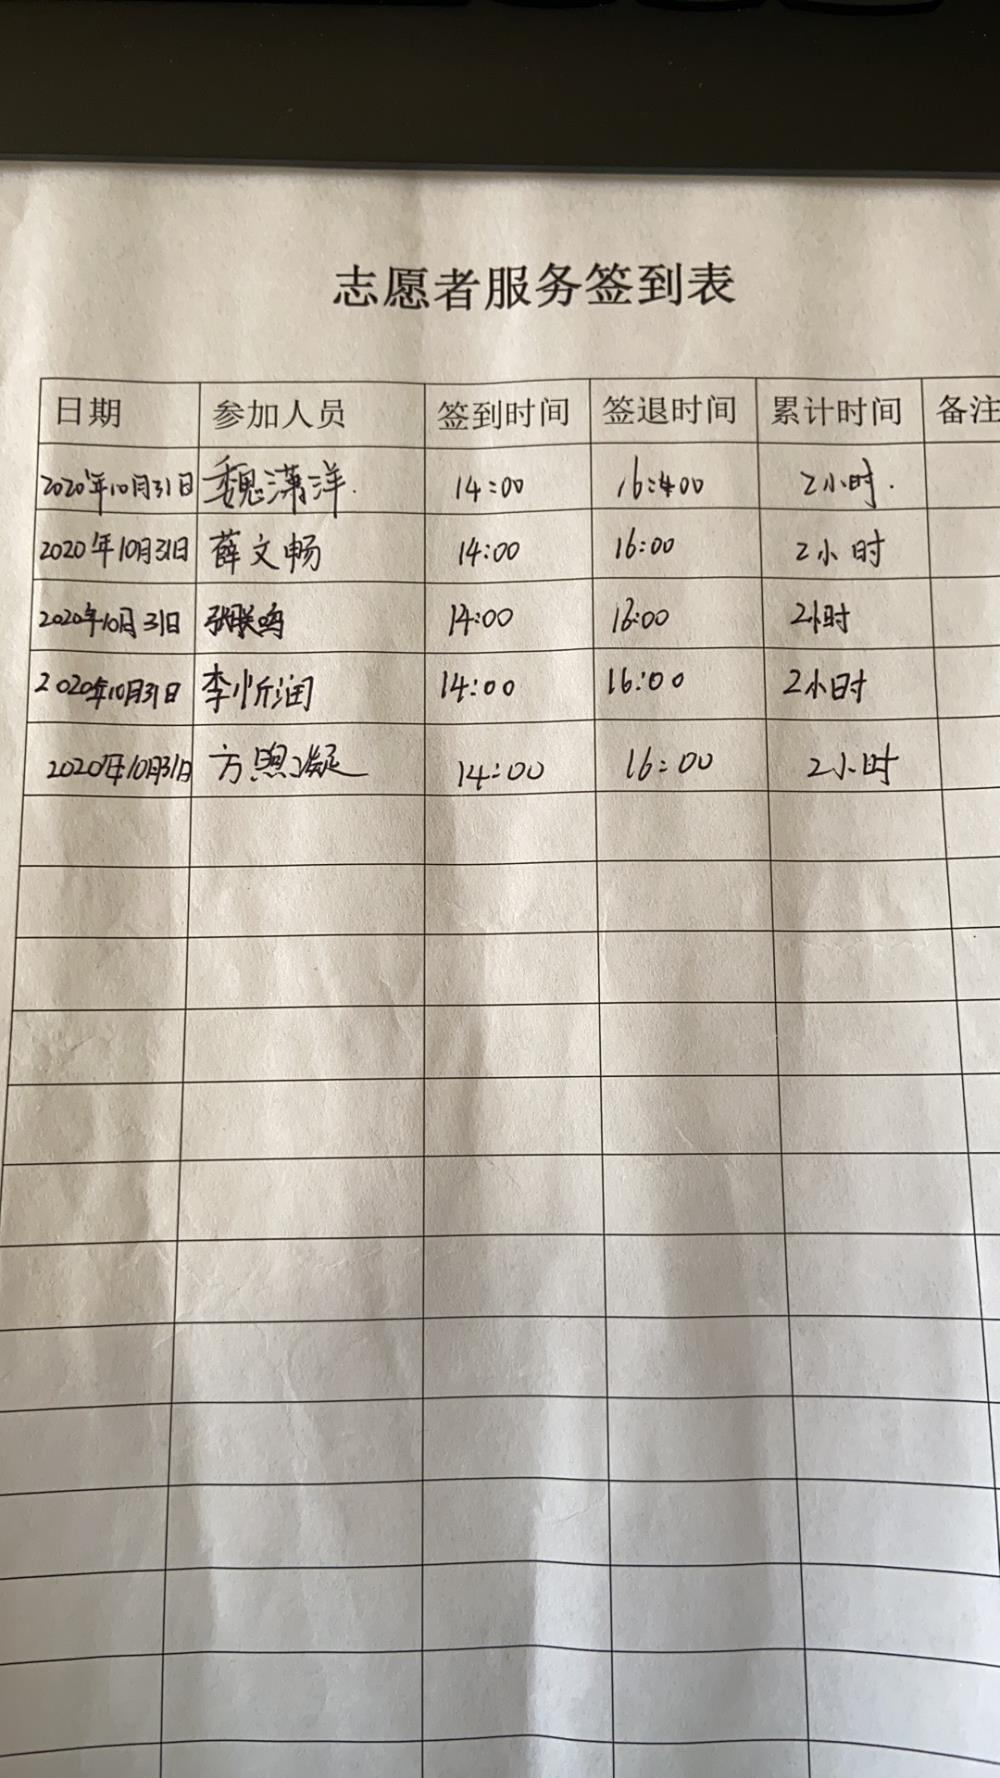 志愿者服务签到表
日期 参加人员 签到时间 签退时间 累计时间 备注
2020年10月31日 魏潇洋. 14:00 16:00 2小时.
2020年10月31日 薛文畅 14:00 16:00 2小时
2020年10月31日 张 鸣 14:00 16:00 2小时
2020年10月31日 李忻润 14:00 16:00 2小时
2020年10月31日 方照凝 14:00 16:00 2小时